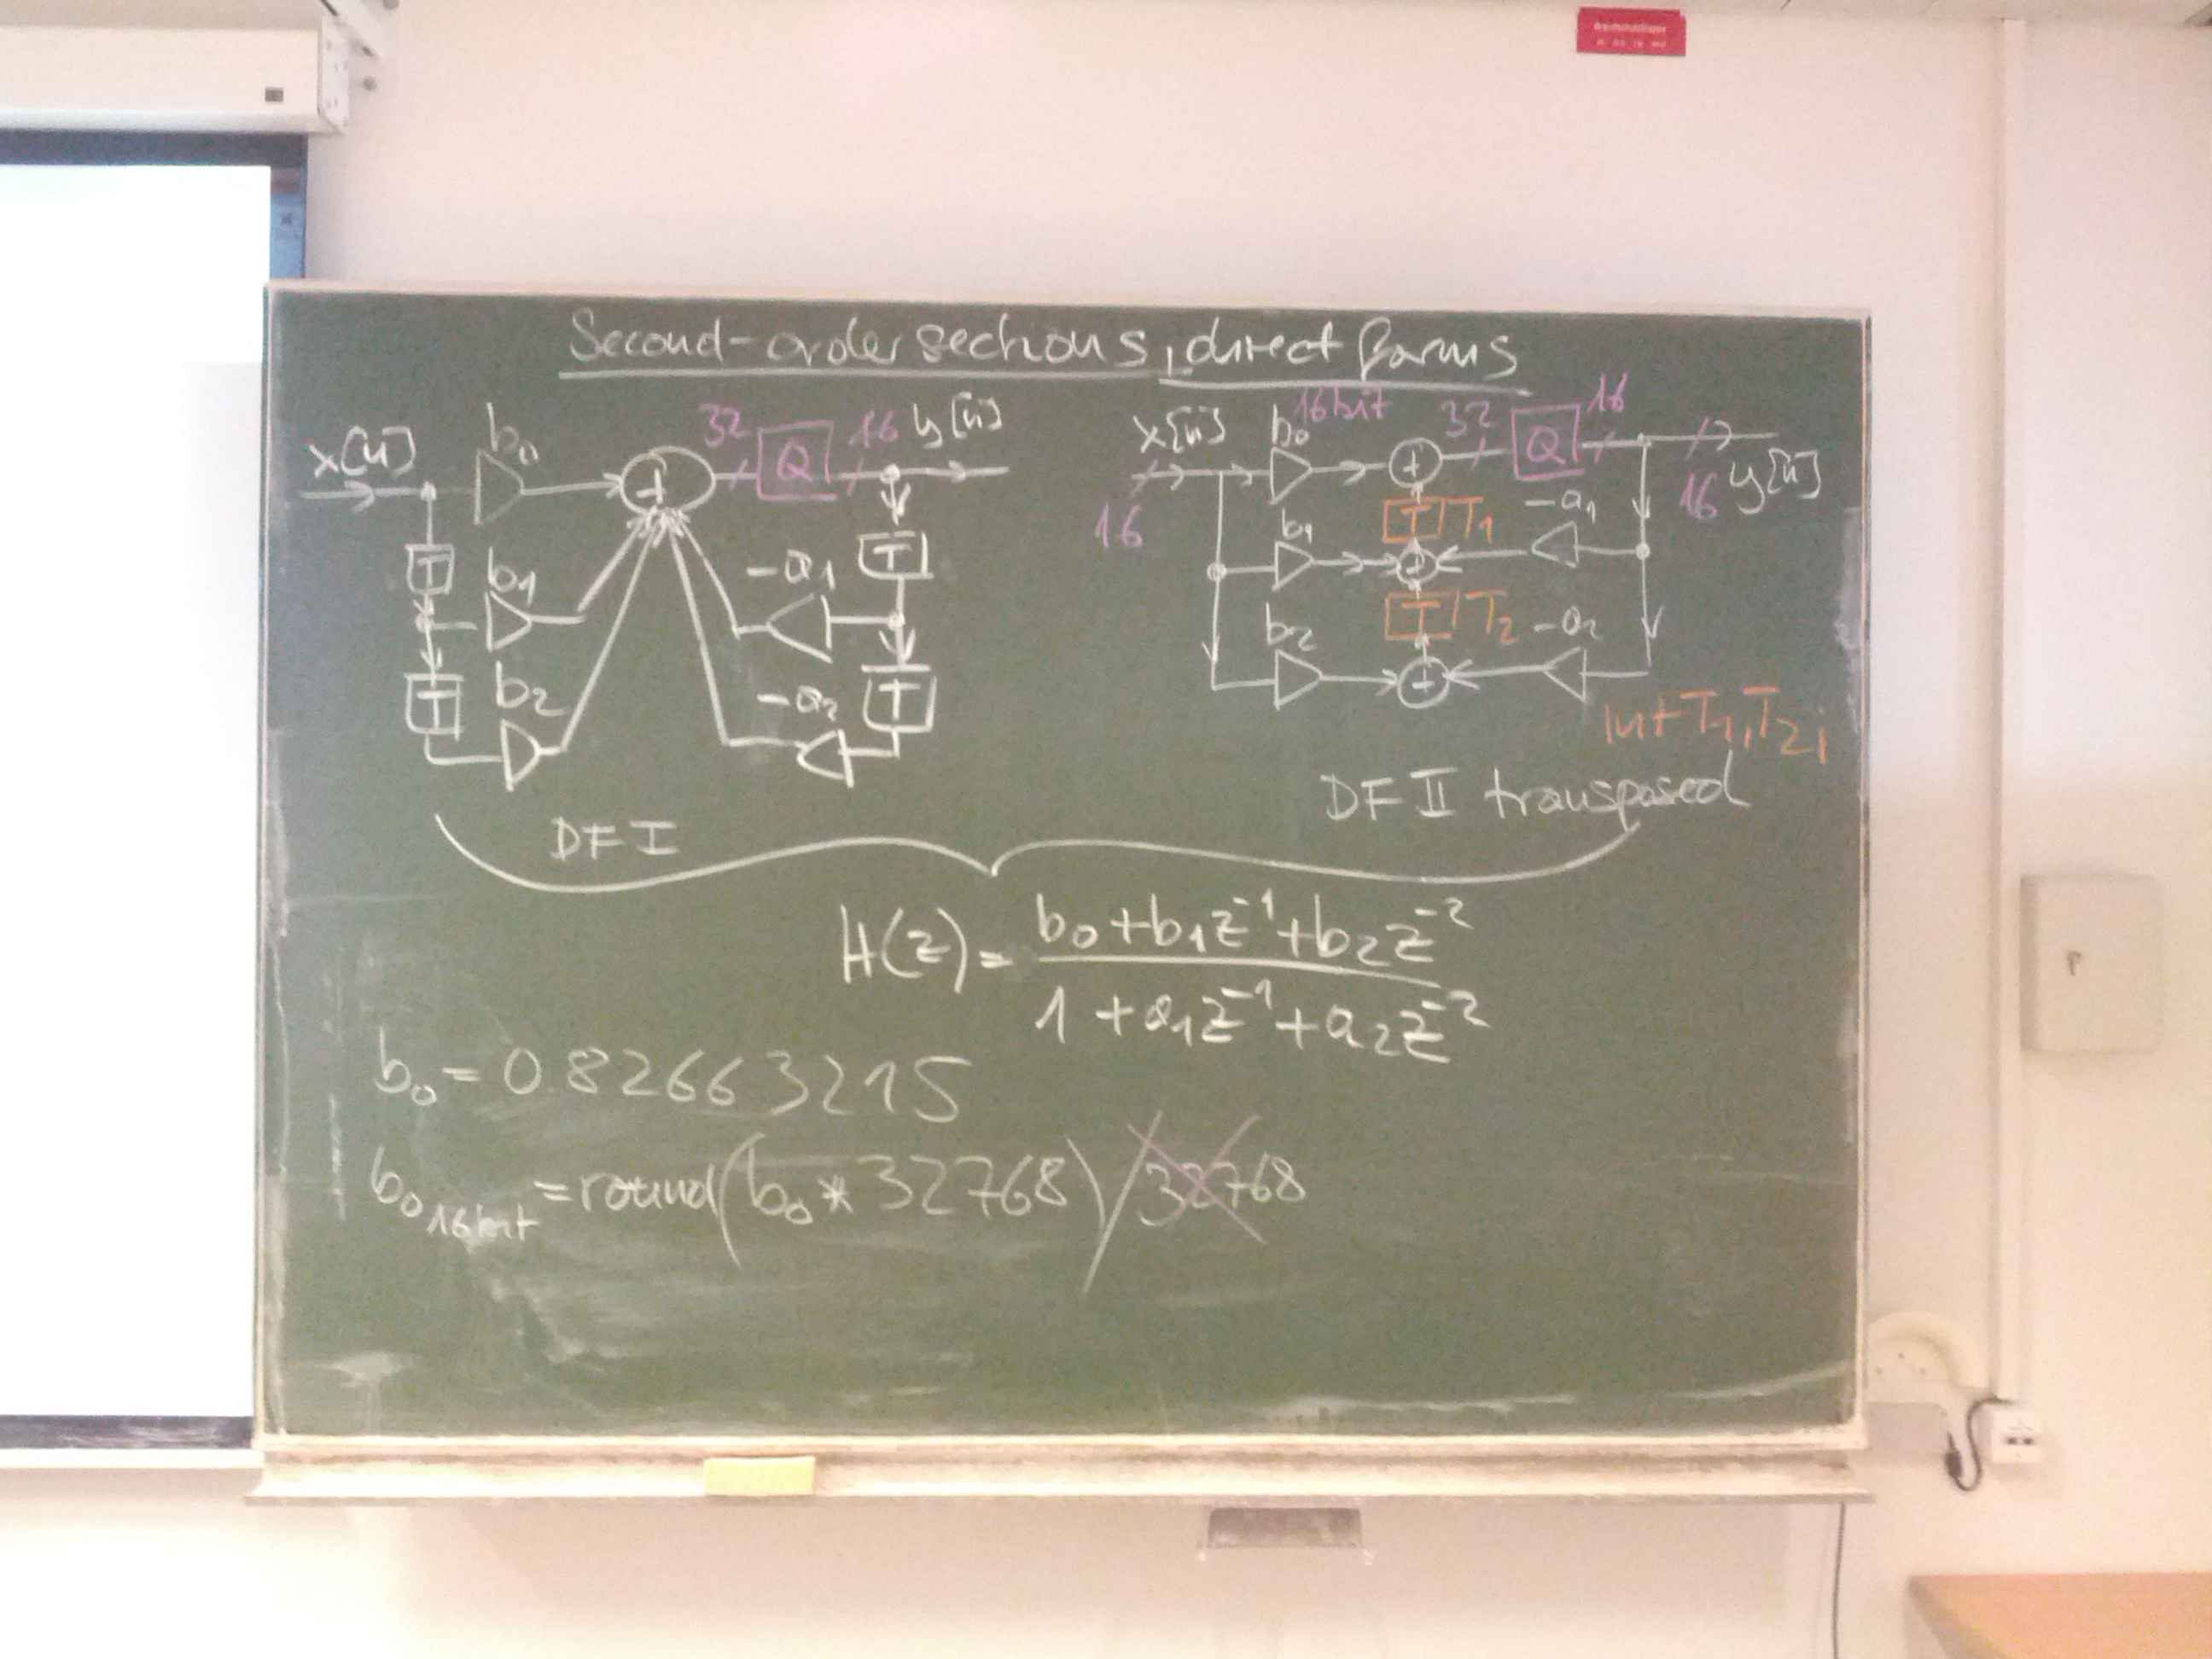 Second-order sections, direct forms
x[n] b0 + 32 Q 16 y[n]
T b1 -a1 T
T b2 -a2 T
DF I
x[n] 16 b0 16bit + 32 Q 16 16 y[n]
T T1
b1 + -a1
T T2
b2 + -a2
int T1, T2;
DF II transposed
H(z) = b0 + b1z^-1 + b2z^-2
1 + a1z^-1 + a2z^-2
b0 = 0.82663215
b0 16bit = round(b0 * 32768)/32768